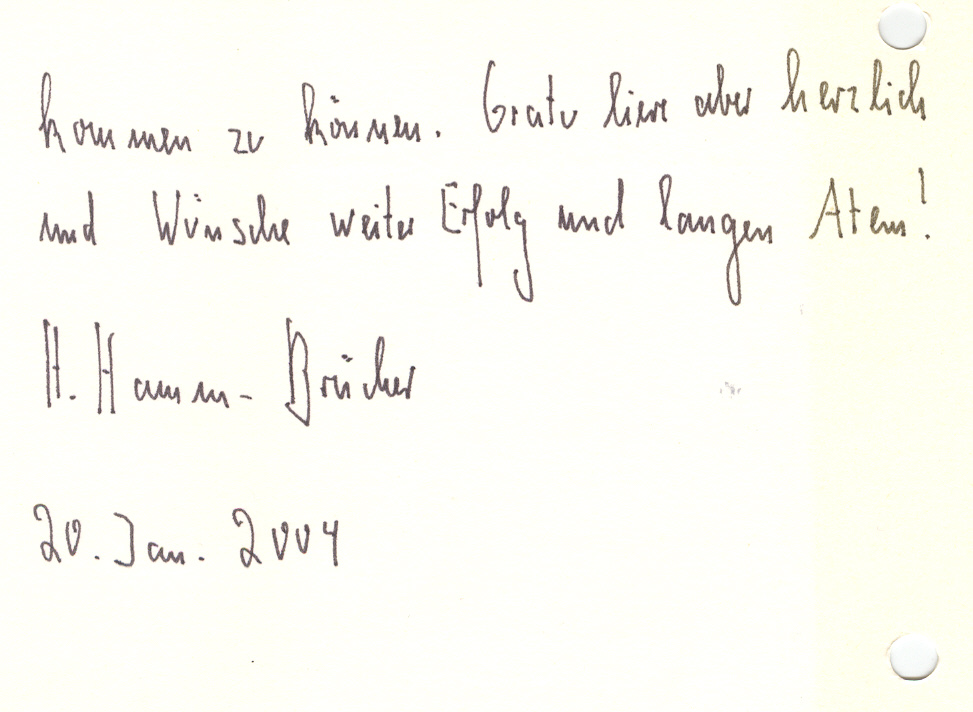 kommen zu können. Gratuliere aber herzlich
und Wünsche weiter Erfolg und langen Atem!
H. Hamm-Brücher
20. Jan. 2004